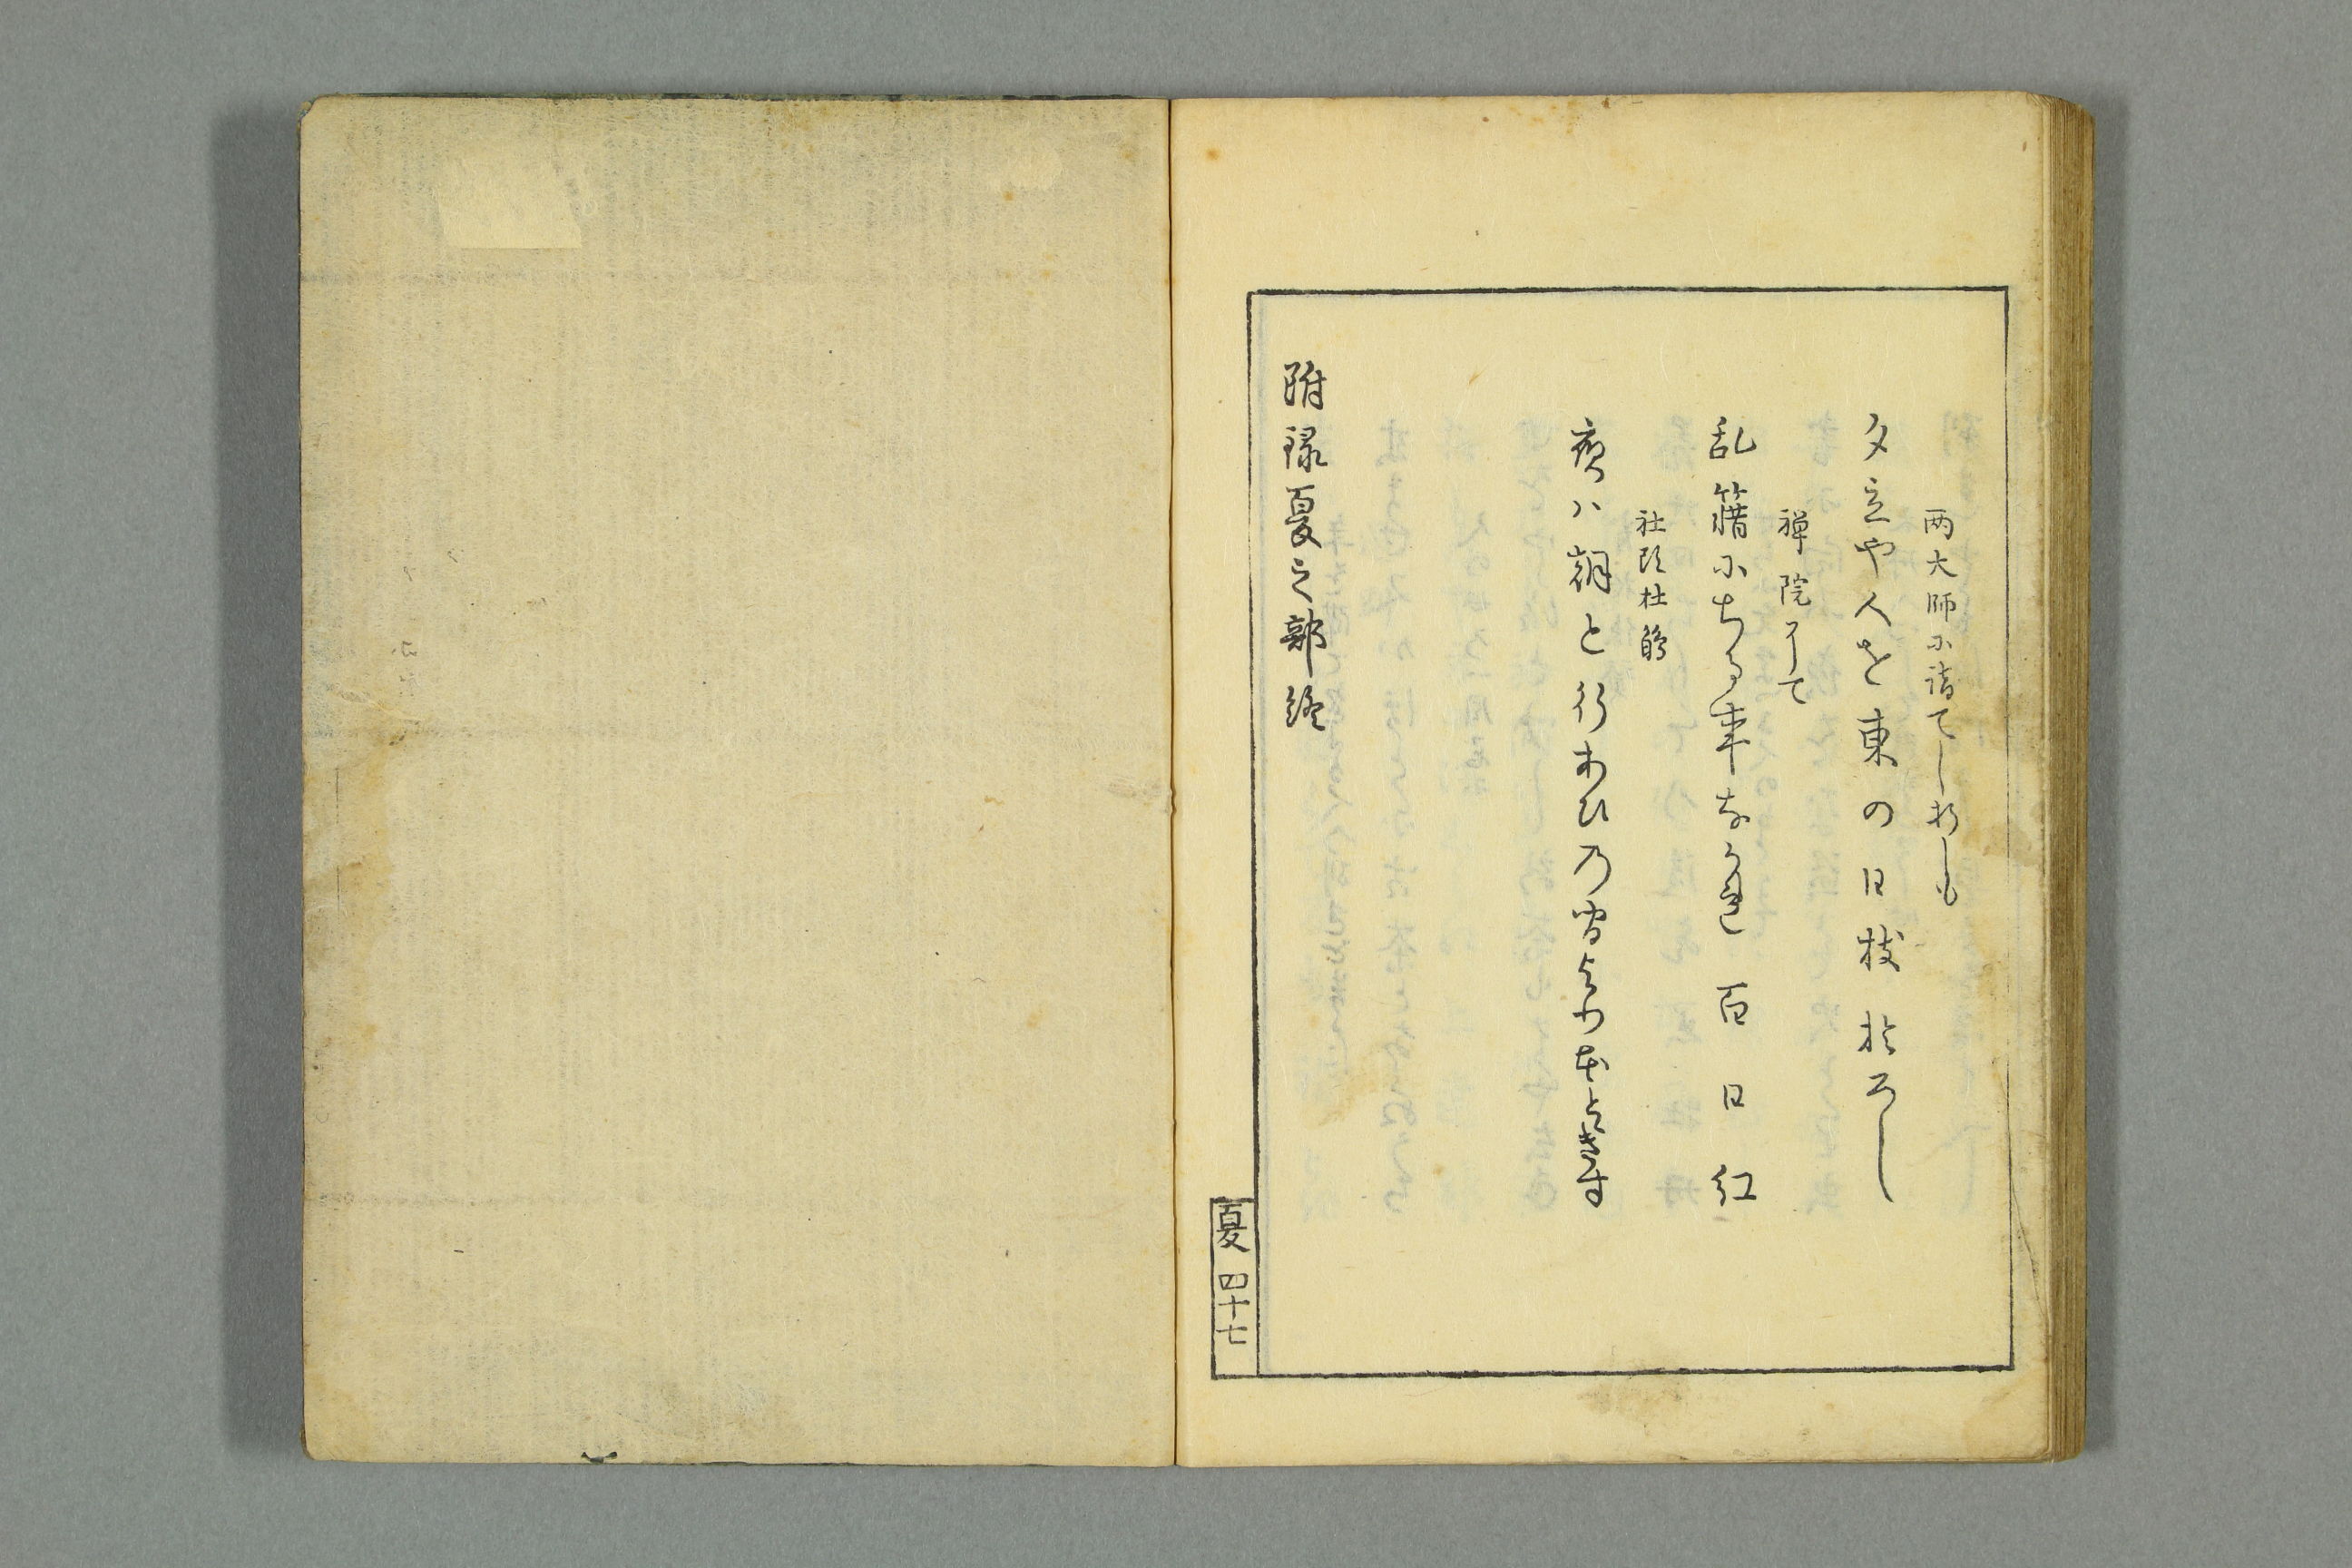 両大師に詣てし折しも
夕立や人を東の日枝おろし
禅院にて
乱籍にちる事なかれ百日紅
社頭杜鵑
ハ朝と行あひの間よりほとゝきす
附録夏之部終
夏 四十七